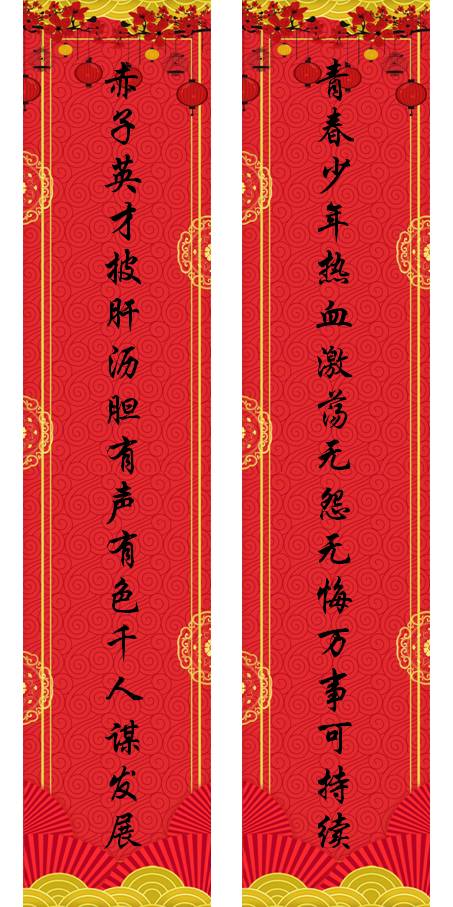 青春少年热血激荡无怨无悔万事可持续
赤子英才披肝沥胆有声有色千人谋发展